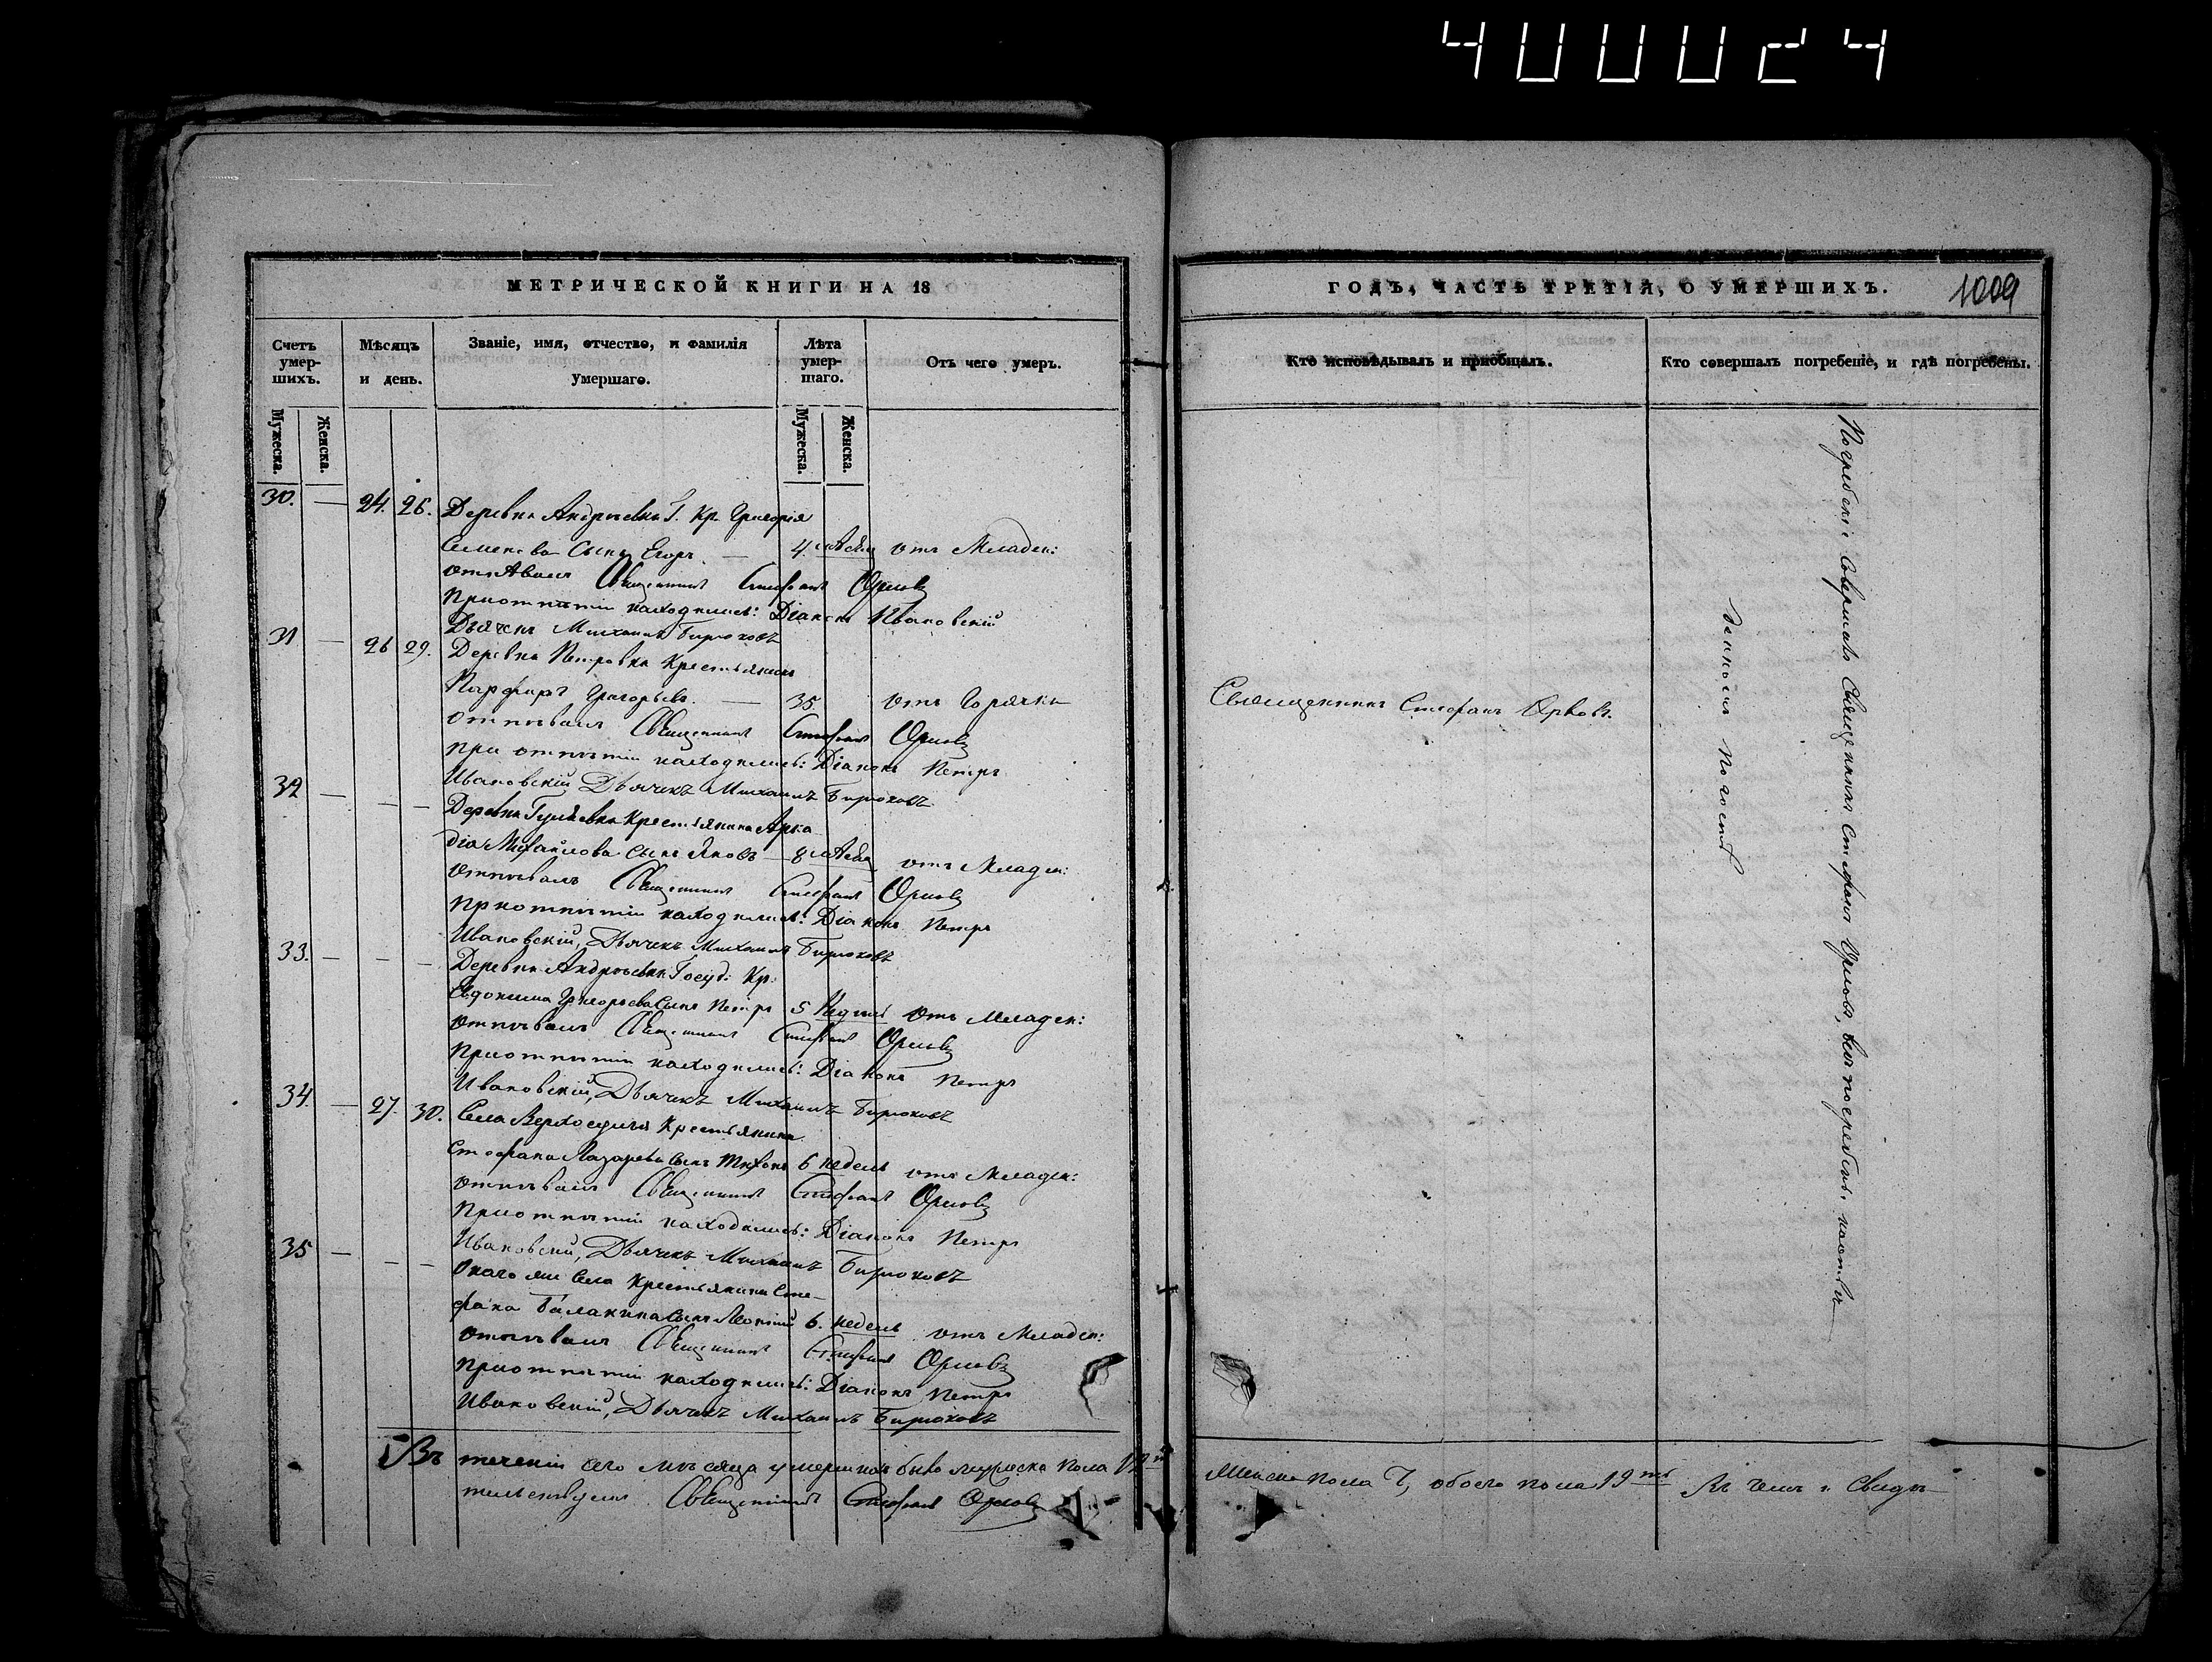 400024
МЕТРИЧЕСКОЙ КНИГИ НА 18
Счетъ умер-шихъ.
Мѣсяцъ и день.
Званіе, имя, отчество, и фамилія умершаго.
Лѣта умер-шаго.
Отъ чего умеръ.
Мужеска.
Женска.
Мужеска.
Женска.
30. — 24. 26. Деревни Андреевки Г. Кр. Григорія
Семенова Сынъ Егоръ — 4. отъ Младен:
отпѣвалъ Священникъ Стефанъ Орловъ
При отпѣтіи находились: Діаконъ Ивановскій
Дьячекъ Михаилъ Бирюковъ
31 — 26 29. Деревни Петровки Крестьянинъ
Григорьевъ. — 35. отъ Горячки
отпѣвалъ Священникъ Стефанъ Орловъ
при отпѣтіи находились: Діаконъ Петръ
Ивановскій Дьячекъ Михаилъ Бирюковъ
32 — — — Деревни Крестьянина Арка
дія Михайлова сынъ Яковъ — 8 отъ Младен:
отпѣвалъ Священникъ Стефанъ Орловъ
При отпѣтіи находились: Діаконъ Петръ
Ивановскій, Дьячекъ Михаилъ Бирюковъ
33. — — — Деревни Андреевки Госуд: Кр:
Евдокима Григорьева Сынъ Петръ 5 Недѣль отъ Младен:
отпѣвалъ Священникъ Стефанъ Орловъ
При отпѣтіи находились: Діаконъ Петръ
Ивановскій, Дьячекъ Михаилъ Бирюковъ
34. — 27. 30. Села Крестьянина
Стефана Лазарева сынъ Тихонъ 6 недель отъ Младен:
отпѣвалъ Священникъ Стефанъ Орловъ
При отпѣтіи находились: Діаконъ Петръ
Ивановскій, Дьячекъ Михаилъ Бирюковъ
35 — — — Села Крестьянина Сте-
фана Балакина сынъ 6. недель отъ Младен:
отпѣвалъ Священникъ Стефанъ Орловъ
При отпѣтіи находились: Діаконъ Петръ
Ивановскій, Дьячекъ Михаилъ Бирюковъ
Въ теченіи сего мѣсяца умершихъ было мужеска пола
тельствуемъ Священникъ Стефанъ Орловъ
ГОДЪ, ЧАСТЬ ТРЕТІЯ, О УМЕРШИХЪ.
1009
Кто исповѣдывалъ и пріобщалъ.
Кто совершалъ погребеніе, и гдѣ погребены.
Священникъ Стефанъ Орловъ.
Погребеніе Совершалъ Священникъ Стефанъ Орловъ, всѣ погребены
Погостѣ
Женска пола 7, обоего пола 19ть Въ чемъ и Свидѣ-